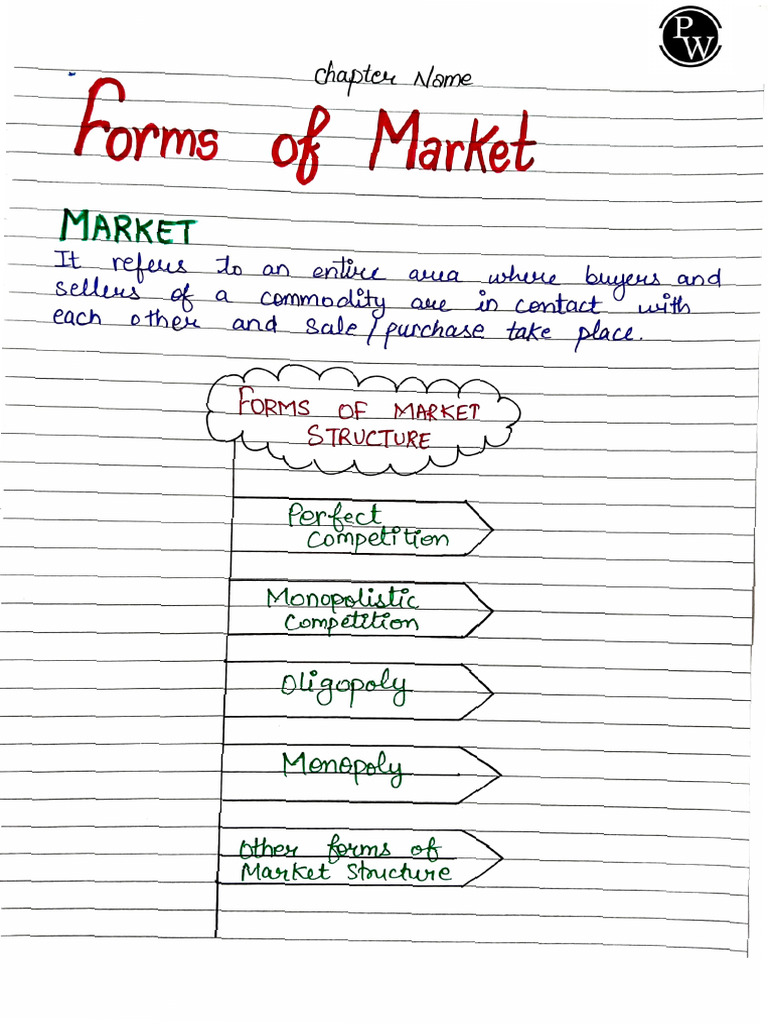 PW
Chapter Name
Forms of Market
MARKET
It refers to an entire area where buyers and
sellers of a commodity are in contact with
each other and sale/purchase take place.
FORMS OF MARKET
STRUCTURE
Perfect
Competition
Monopolistic
Competition
Oligopoly
Monopoly
Other forms of
Market Structure